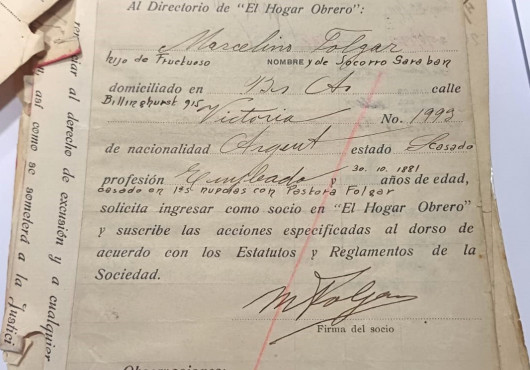 Al Directorio de "El Hogar Obrero":
Marcelino Folgar
hijo de Fructuoso NOMBRE y de Socorro Saraban
domiciliado en Bs As calle
Billinghurst 915
Victoria No. 1993
de nacionalidad Argent estado Casado
profesión Empleado y 30. 10. 1881 años de edad,
casado en 1as nupcias con Pastora Folgar
solicita ingresar como socio en "El Hogar Obrero"
y suscribe las acciones especificadas al dorso de
acuerdo con los Estatutos y Reglamentos de la
Sociedad.
M Folgar
Firma del socio
Observaciones:
al derecho de excusión y a cualquier
así como se someterá a la Justici